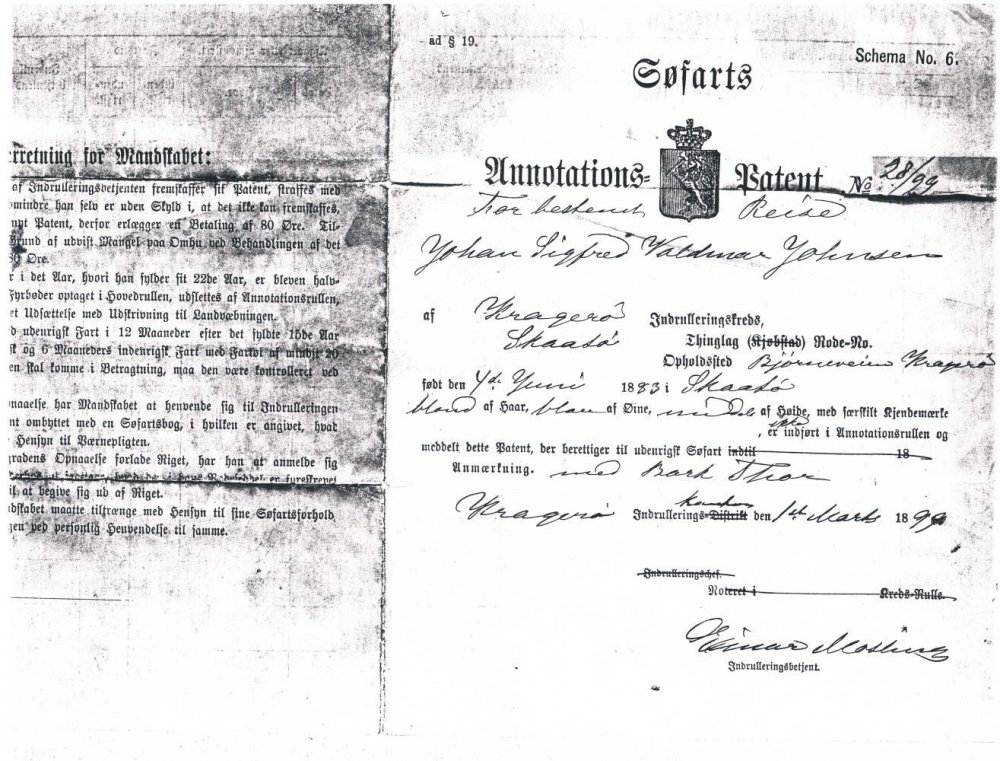 rretning for Mandskabet:
af Indrulleringsbetjenten fremskaffer sit Patent, straffes med
omindre han selv er uden Skyld i, at det ikke kan fremskaffes,
nyt Patent, derfor erlægger en Betaling af 80 Øre. Til-
Grund af udvist Mangel paa Omhu ved Behandlingen af det
80 Øre.
r i det Aar, hvori han fylder sit 22de Aar, er bleven halv-
Fyrbøder optaget i Hovedrullen, udslettes af Annotationsrullen,
et Udsættelse med Udskrivning til Landværbningen.
d udenrigsk Fart i 12 Maaneder efter det fyldte 15de Aar
sk og 6 Maaneders indenrigsk Fart med Fartøi af mindst 20
en skal komme i Betragtning, maa den være kontrolleret ved
pnaaelse har Mandskabet at henvende sig til Indrulleringen
nt ombyttet med en Søfartsbog, i hvilken er angivet, hvad
Hensyn til Værnepligten.
gradens Opnaaelse forlade Riget, har han at anmelde sig
til at begive sig ud af Riget.
ndskabet maatte tiltrænge med Hensyn til sine Søfartsforhold
gen ved personlig Henvendelse til samme.
ad § 19.
Schema No. 6.
Søfarts
Annotations= Patent No 28/99
For bestemt Reise
Johan Sigfred Valdmar Johnsen
af Kragerø Indrulleringskreds,
Skaatø Thinglag (Kjøbstad) Rode-No.
Opholdsted Bjørneveien Kragerø
født den 4de Juni 1883 i Skaatø
blond af Haar, blaa af Øine, middels af Høide, med særskilt Kjendemærke
, er indført i Annotationsrullen og
meddelt dette Patent, der berettiger til udenrigsk Søfart indtil 18
Anmærkning. med Bark Thor
Kragerø Indrullerings-Distrikt den 1st Marts 1899
Indrulleringschef.
Noteret i Kreds-Rulle.
Einar
Indrulleringsbetjent.